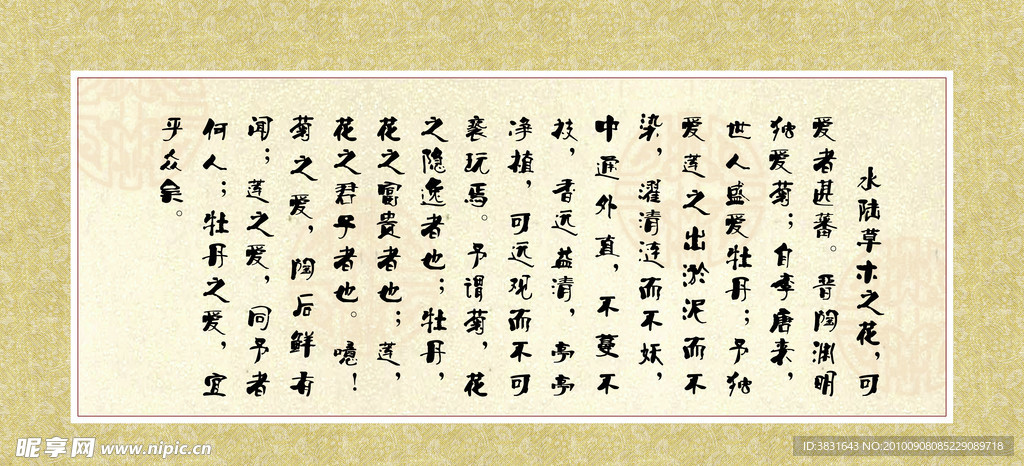 水陆草木之花，可
爱者甚蕃。晋陶渊明
独爱菊；自李唐来，
世人盛爱牡丹；予独
爱莲之出淤泥而不
染，濯清涟而不妖，
中通外直，不蔓不
枝，香远益清，亭亭
净植，可远观而不可
亵玩焉。予谓菊，花
之隐逸者也；牡丹，
花之富贵者也；莲，
花之君子者也。噫！
菊之爱，陶后鲜有
闻；莲之爱，同予者
何人；牡丹之爱，宜
乎众矣。
昵享网 www.nipic.cn
ID:3831643 NO:20100908085229089718